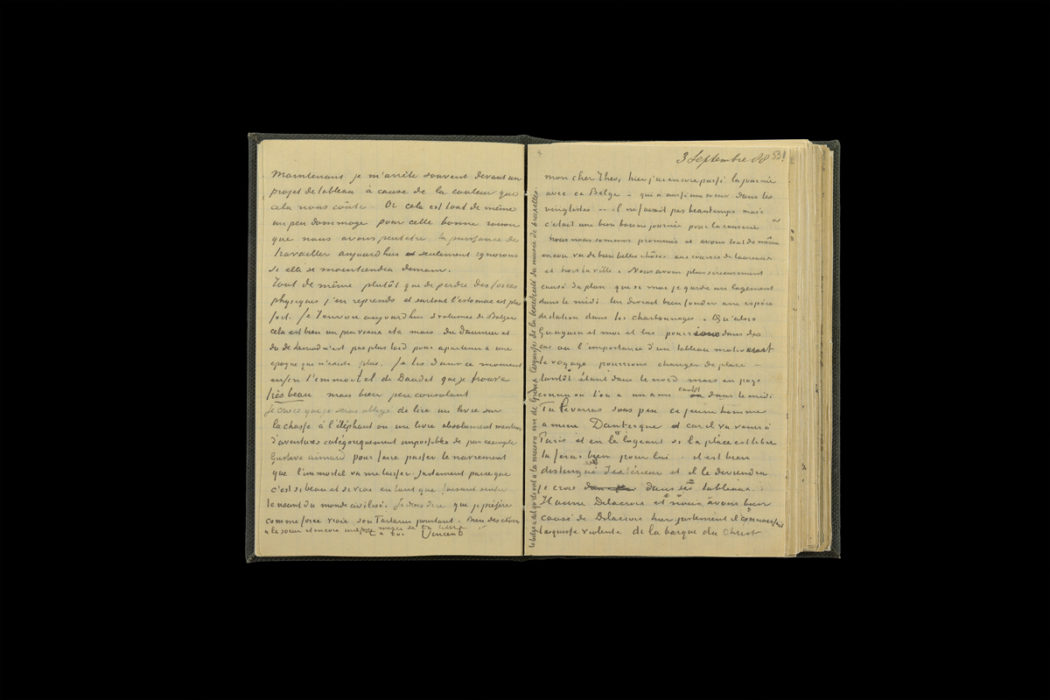 Maintenant je m'arrête souvent devant un
projet de tableau à cause de la couleur que
cela nous coûte. Or cela est tout de même
un peu dommage pour cette bonne raison
que nous avons peutetre la puissance de
travailler aujourd'hui et seulement ignorons
si elle se maintiendra demain.
Tout de même plutôt que de perdre des forces
physiques j'en reprends et surtout l'estomac est plus
fort. Je t'envoie aujourd'hui 3 volumes de Balzac
cela est bien un peu vieux etc mais du Daumier et
du de Lemud n'est pas plus laid pour apartenir à une
epoque qui n'existe plus. Je lis dans ce moment
enfin l'immortel de Daudet que je trouve
très beau mais bien peu consolant
Je crois que je serai obligé de lire un livre sur
la chasse à l'éléphant ou un livre absolument menteur
d'aventures catégoriquement impossibles de par exemple
Gustave aimard pour faire passer le navrement
que l'immortel va me laisser. Justement parceque
c'est si beau et si vrai en tant que faisant sentir
le néant du monde civilisé. Je dois dire que je préfère
comme force vraie son Tartarin pourtant. Bien des choses
à la soeur et encore une fois merci de ta lettre
t. à toi Vincent
3 Septembre 88
mon cher Theo, hier j'ai encore passé la journée
avec ce Belge - qui a aussi une soeur dans les
vingtistes - il ne faisait pas beau temps mais
c'était une bien bonne journée pour la causerie
nous nous sommes promenés et avons tout de même
encore vu de bien belles choses aux courses de taureaux
et hors la ville. Nous avons plus sérieusement
causé du plan que si moi je garde un logement
dans le midi lui devrait bien fonder une espèce
de station dans les charbonnages. Qu'alors
Gauguin et moi et lui pourrions dans des
cas où l'importance d'un tableau motiverait
le voyage pourrions changer de place -
tantôt étant dans le nord mais en pays
connu où l'on a un ami tantôt dans le midi
Tu le verras sous peu ce jeune homme
à mine Dantesque car il va venir à
Paris et en le logeant si la place est libre
tu feras bien pour lui. il est bien
distingué d'extérieur et il le deviendra
je crois dans ses tableaux.
Il aime Delacroix et nous avons bien
causé de Delacroix hier justement il connaissait
l'esquisse violente de la barque du Christ